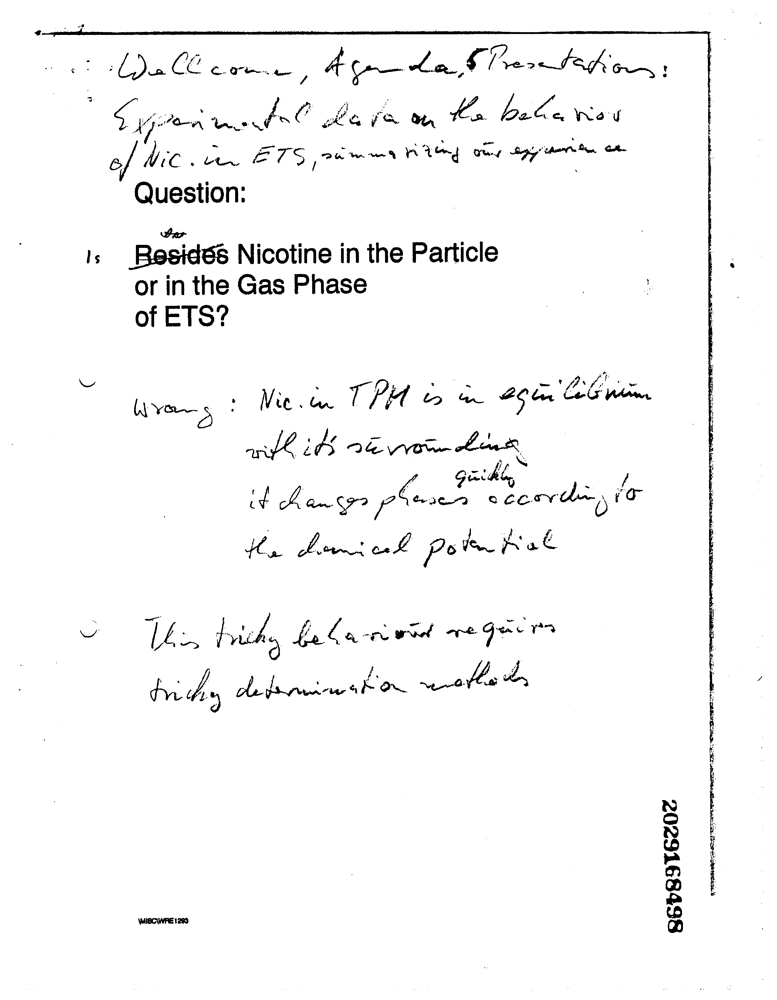 Wellcome, Agenda, 5 Presentations:
Experimental data on the behaviour
of Nic. in ETS, summarizing our experience
Question:
Is Besides Nicotine in the Particle
or in the Gas Phase
of ETS?
Wrong: Nic. in TPM is in equilibrium
with it's surrounding
quickly
it changes phases according to
the chemical potential
This tricky behaviour requires
tricky determination methods
2029168498
\MIBC\WRE1293